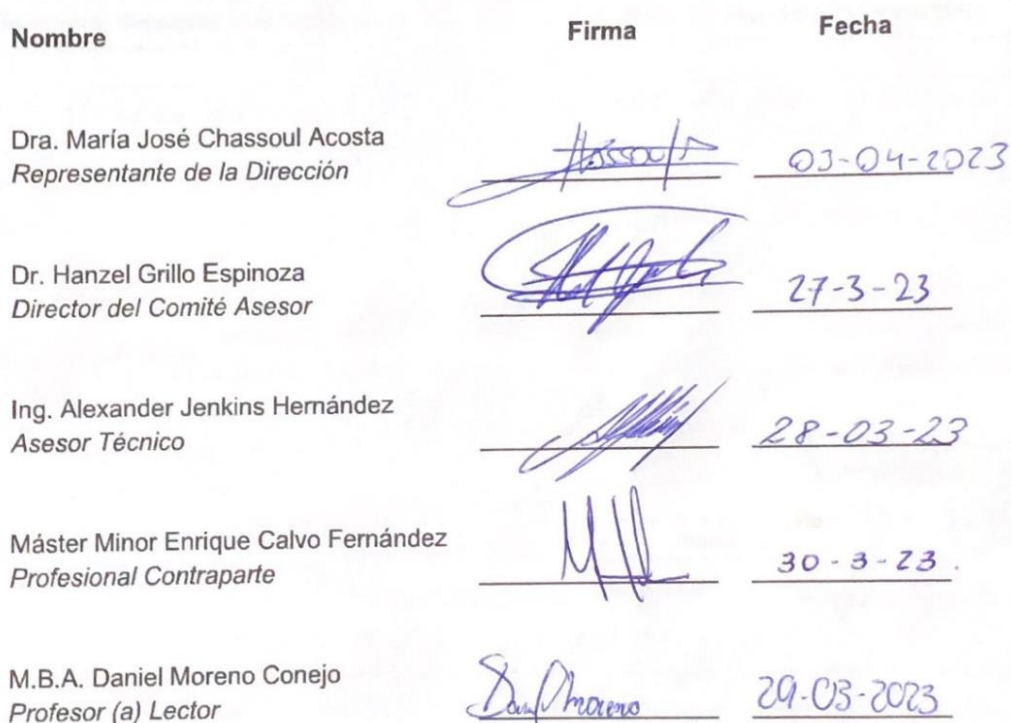 Nombre Firma Fecha
Dra. María José Chassoul Acosta
Representante de la Dirección
03-04-2023
Dr. Hanzel Grillo Espinoza
Director del Comité Asesor
27-3-23
Ing. Alexander Jenkins Hernández
Asesor Técnico
28-03-23
Máster Minor Enrique Calvo Fernández
Profesional Contraparte
30-3-23.
M.B.A. Daniel Moreno Conejo
Profesor (a) Lector
29-03-2023